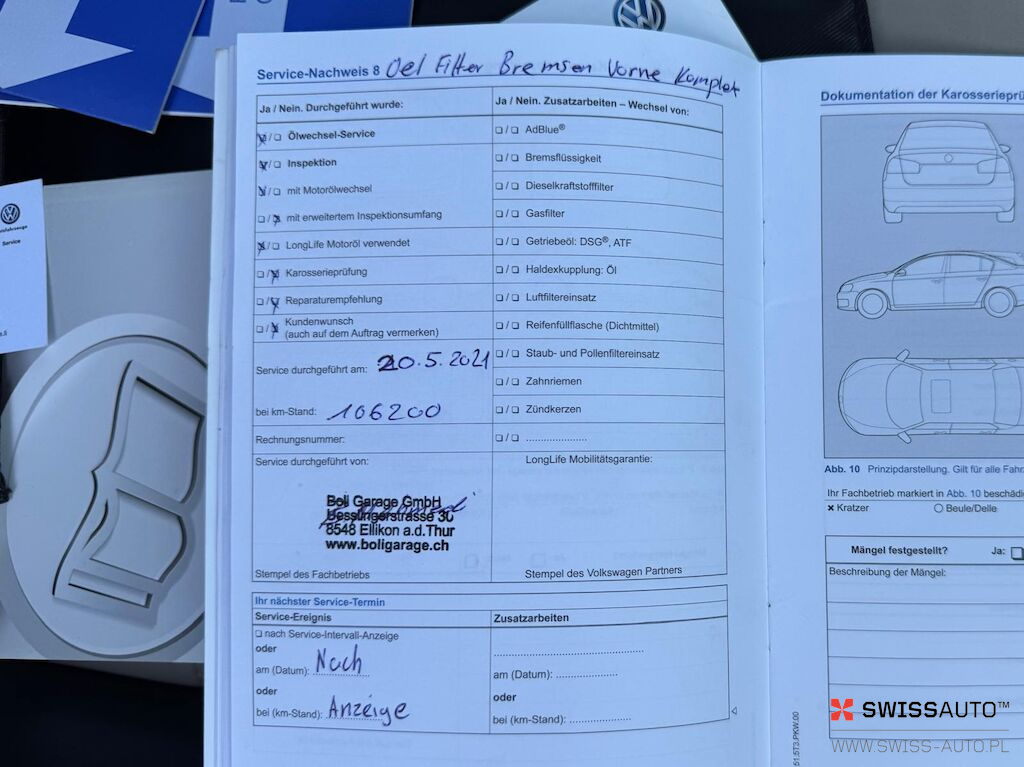 Service-Nachweis 8 Oel Filter Bremsen Vorne Komplet
Ja / Nein. Durchgeführt wurde:
☒/☐ Ölwechsel-Service
☒/☐ Inspektion
☒/☐ mit Motorölwechsel
☐/☒ mit erweitertem Inspektionsumfang
☒/☐ LongLife Motoröl verwendet
☐/☒ Karosserieprüfung
☐/☒ Reparaturempfehlung
☐/☒ Kundenwunsch
(auch auf dem Auftrag vermerken)
Service durchgeführt am: 20.5.2021
bei km-Stand: 106200
Rechnungsnummer:
Service durchgeführt von:
Boli Garage GmbH
Uessungerstrasse 30
8548 Ellikon a.d.Thur
www.boligarage.ch
Stempel des Fachbetriebs
Ja / Nein. Zusatzarbeiten – Wechsel von:
☐/☐ AdBlue®
☐/☐ Bremsflüssigkeit
☐/☐ Dieselkraftstofffilter
☐/☐ Gasfilter
☐/☐ Getriebeöl: DSG®, ATF
☐/☐ Haldexkupplung: Öl
☐/☐ Luftfiltereinsatz
☐/☐ Reifenfüllflasche (Dichtmittel)
☐/☐ Staub- und Pollenfiltereinsatz
☐/☐ Zahnriemen
☐/☐ Zündkerzen
☐/☐ .....................
LongLife Mobilitätsgarantie:
Stempel des Volkswagen Partners
Ihr nächster Service-Termin
Service-Ereignis
☐ nach Service-Intervall-Anzeige
oder
am (Datum): Nach
oder
bei (km-Stand): Anzeige
Zusatzarbeiten
am (Datum): ..................
oder
bei (km-Stand): ..................
Dokumentation der Karosserieprü
Abb. 10 Prinzipdarstellung. Gilt für alle Fahrz
Ihr Fachbetrieb markiert in Abb. 10 beschädi
× Kratzer ○ Beule/Delle
Mängel festgestellt? Ja: ☐
Beschreibung der Mängel:
51.5T3.PKW.00
Service
SWISSAUTO™
WWW.SWISS-AUTO.PL